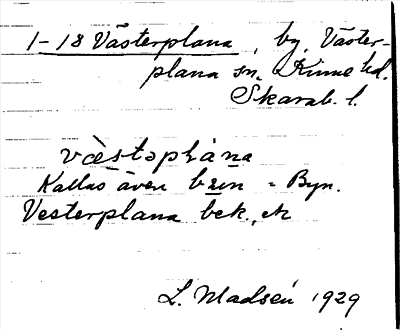 1-18 Västerplana, by, Väster-
plana sn. Kinne hd.
Skarab. l.
væ̀stəplàna
Kallas även bʒin = Byn.
Vesterplana bek.
L. Madsén 1929